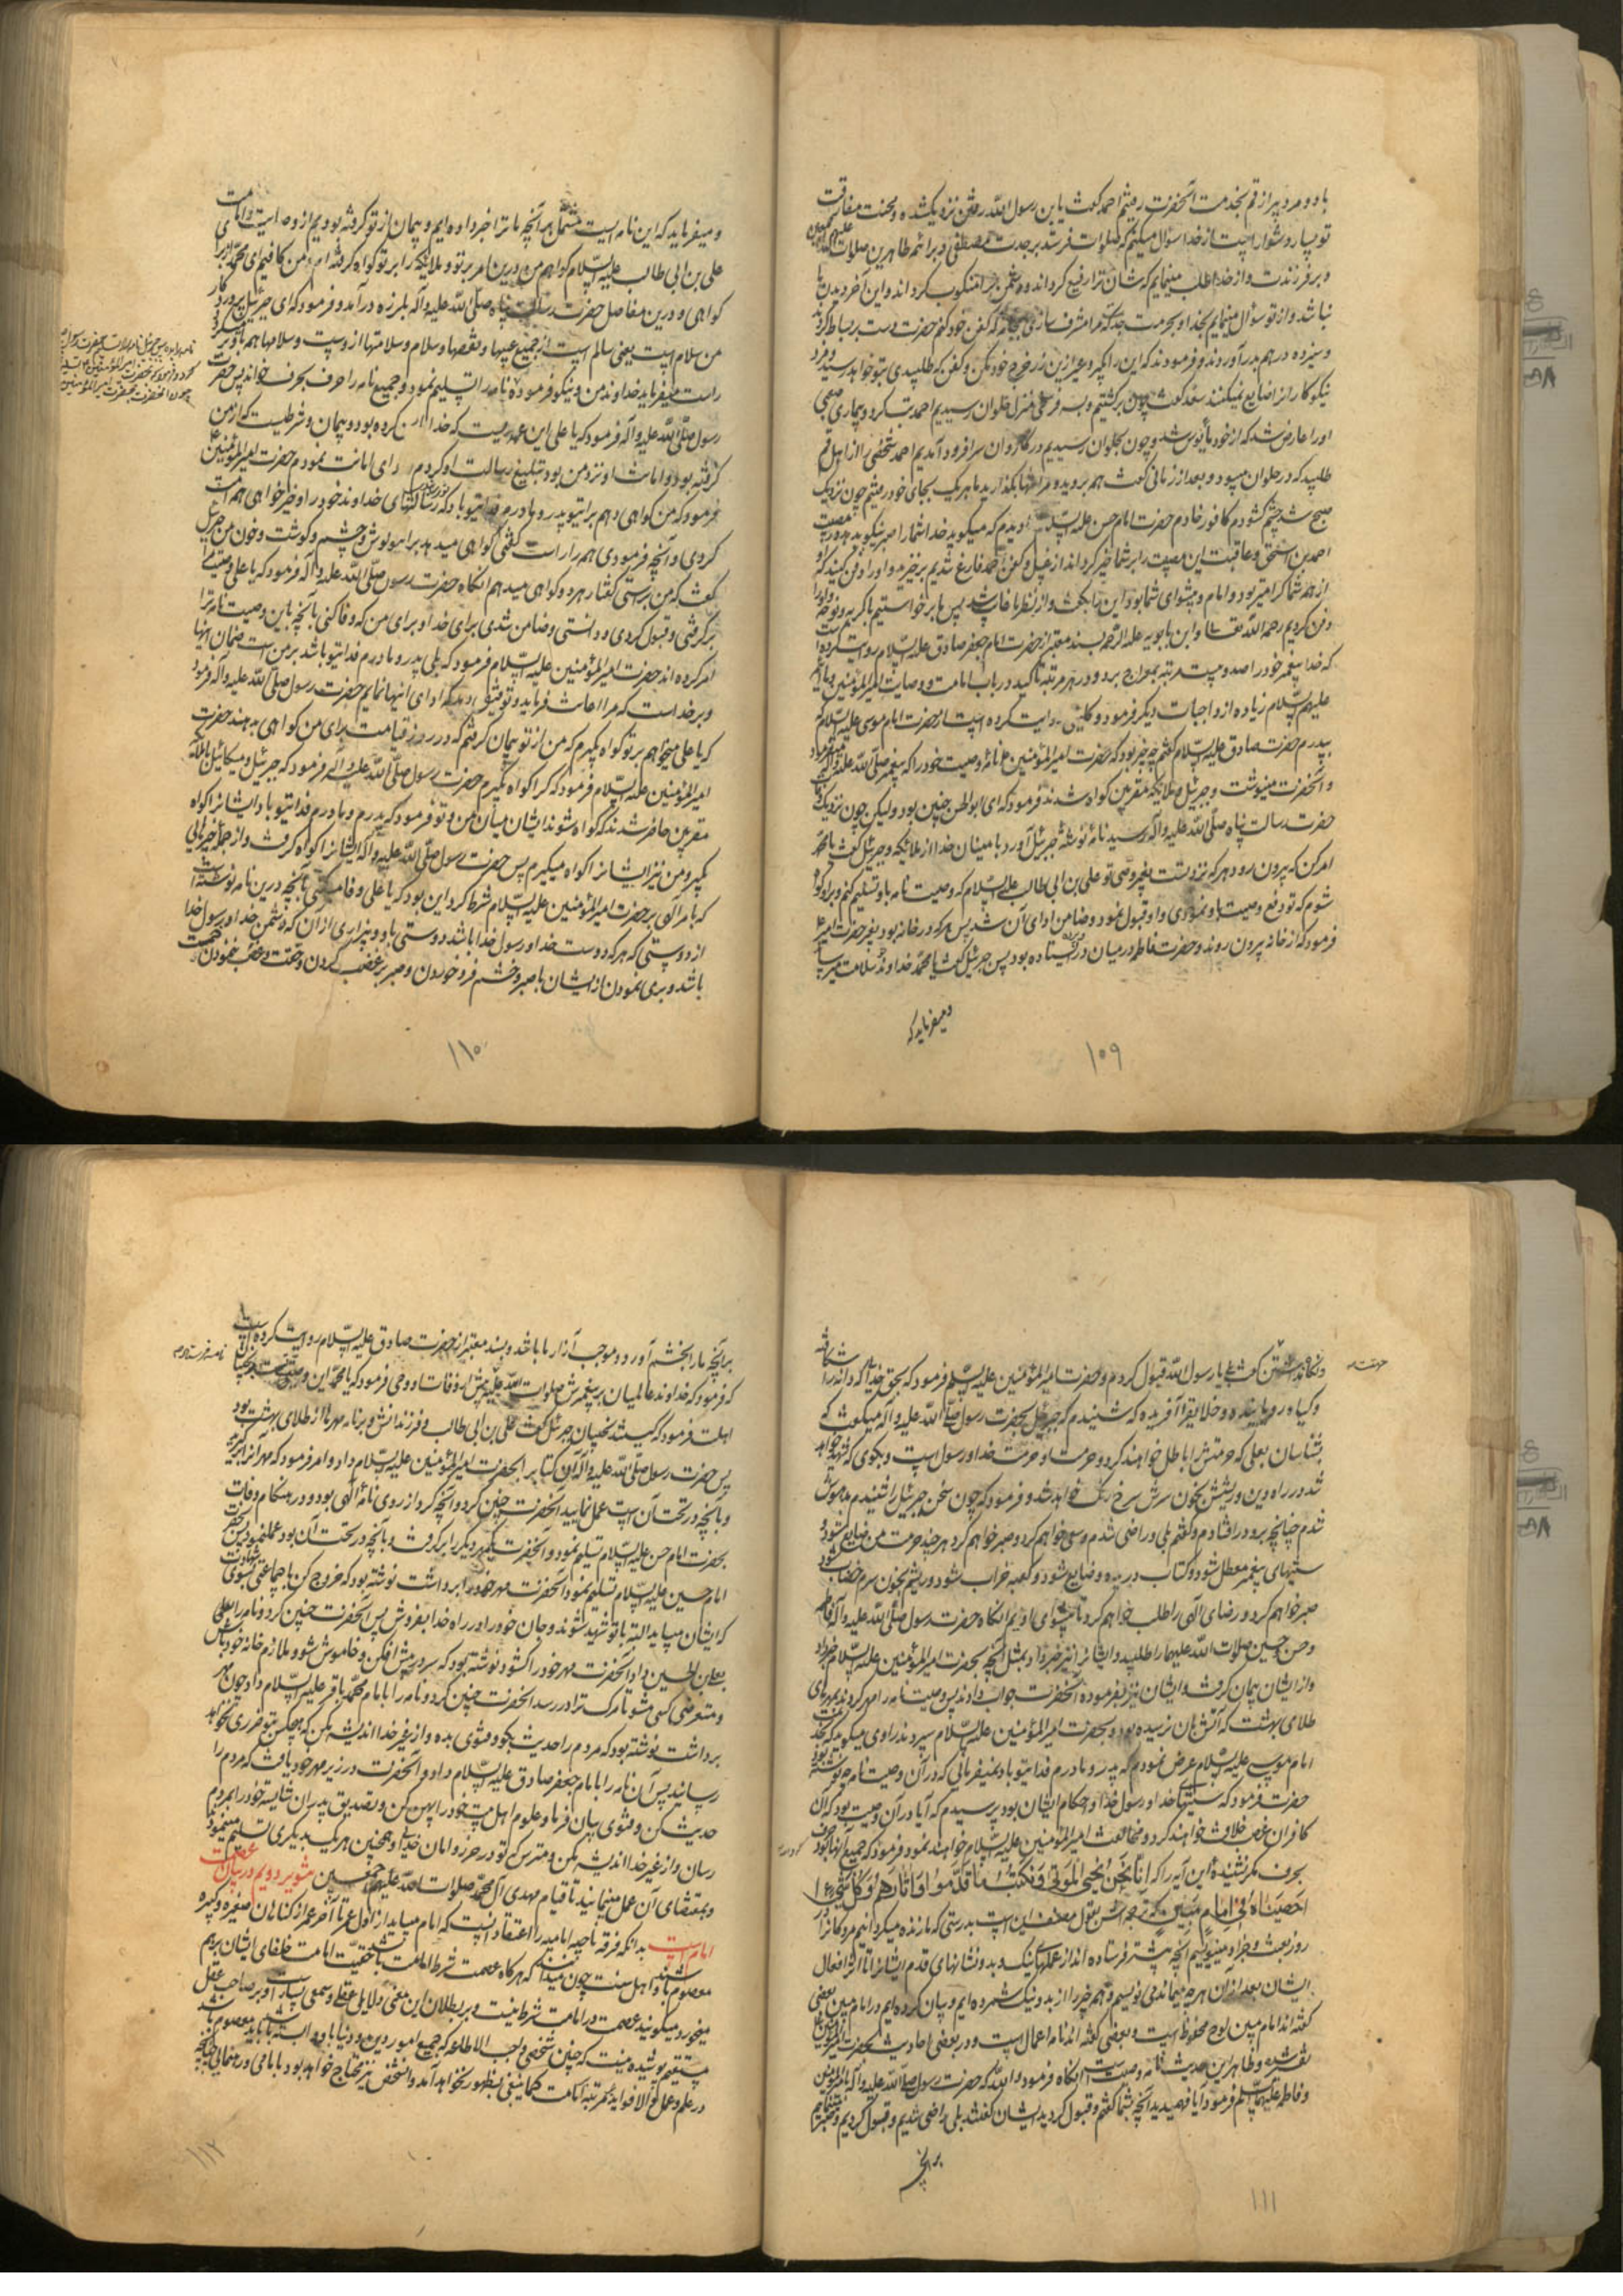 با دو مرد پیر از قم بخدمت آنحضرت رفتیم احمد گفت یابن رسول الله رفتن نزدیک شده و محنت مفارقت
تو بسیار دشوار است از خدا سؤال میکنم که صلوات فرستد بر جدت مصطفی و بر ائمه طاهرین صلوات
و بر فرزندت و از خدا طلب مینمایم که شان ترا رفیع گرداند و دشمن ترا منکوب گرداند و این آخر دیدن ما
نباشد و از تو سؤال مینمایم بخدا و بحرمت جدت که مرا مشرف سازی بجامهٔ که کفن خود کنم حضرت دست بر بساط کرد
و سیزده درهم بدر آوردند و فرمودند که این را بگیر و غیر ازین زر خرج خود مکن و کفن که طلبیدی بتو خواهد رسید و مزد
نیکوکاران را ضایع نمیکنند سعد گفت چون برگشتیم و بسه فرسخی منزل حلوان رسیدیم احمد تب کرد و بیماری صعبی
او را عارض شد که از خود مأیوس شد و چون بحلوان رسیدیم در کاروان سرا فرود آمدیم احمد شخصی را از اهل قم
طلبید که در حلوان میبود و بعد از زمانی گفت همه بروید و مرا تنها بگذارید ما هر یک بجای خود رفتیم چون نزدیک
صبح شد چشم گشودم کافور خادم حضرت امام حسن علیه السلام را دیدم که میگوید خدا شما را صبر نیکو بدهد در مصیبت
احمد بن اسحق و عاقبت این مصیبت را بر شما خیر گرداند از غسل و کفن احمد فارغ شدیم برخیزید و او را دفن کنید که او
از همه شما گرامیتر بود نزد امام و پیشوای شما این را بگفت و از نظر ما غایب شد پس ما برخاستیم با گریه و نوحه و او را
دفن کردیم رحمه الله تعالی و ابن بابویه علیه الرحمه بسند معتبر از حضرت امام جعفر صادق علیه السلام روایت کرده است
که خدا پیغمبر خود را صد و بیست مرتبه بمعراج برد و در هر مرتبه تأکید در باب امامت و وصایت امیر المؤمنین و سایر ائمه
علیهم السلام زیاده از واجبات دیگر فرمود و کلینی روایت کرده است از حضرت امام موسی علیه السلام که
بپدرم حضرت صادق علیه السلام گفتم چه خبر بود که حضرت امیر المؤمنین نامهٔ وصیت خود را که پیغمبر صلی الله علیه و آله میفرمود
و آنحضرت مینوشت و جبرئیل و ملائکه مقربین گواه شدند فرمود که ای ابو الحسن چنین بود ولیکن چون نزدیک وفات
حضرت رسالت پناه صلی الله علیه و آله رسید نامهٔ نوشتهٔ جبرئیل آورد با امینان خدا از ملائکه و جبرئیل گفت یا محمد
امر کن که بیرون رود هر که نزد تست بغیر وصی تو علی بن ابی طالب علیه السلام که وصیت نامه باو تسلیم کنم و برو گواه
شوم که تو دفع وصیت باو نمودی و او قبول نمود و ضامن ادای آن شد پس هر که در خانه بود بغیر حضرت امیر
فرمود که از خانه بیرون روند و حضرت فاطمه در میان در و پرده ایستاده بود پس جبرئیل گفت یا محمد خداوندت سلامت میرساند
و میفرماید که
۱۰۹
و میفرماید که این نامه ایست مشتمل بر آنچه ما ترا خبر داده ایم و پیمان از تو گرفته بودیم از وصایت و امامت
علی بن ابی طالب علیه السلام گواهم من درین امر بر تو و ملائکه را بر تو گواه گرفته ام و من کافیم ای محمد از برای
گواهی و درین مفاصل حضرت رسالت پناه صلی الله علیه و آله بلرزه در آمد و فرمود که ای جبرئیل پروردگار
من سلام است یعنی سالم است از جمیع عیبها و نقصها و سلام و سلامتها ازوست و سلامها همه باو بر میگردد
راست میفرماید خداوند من و نیکو فرموده نامه را تسلیم نمود و جمیع نامه را حرف بحرف خواند پس حضرت
رسول صلی الله علیه و آله فرمود که یا علی این عهدیست که خدا با من کرده بود و پیمان و شرطیست که از من
گرفته بود و امانت او نزد من بود تبلیغ رسالت او کردم و ادای امانت نمودم حضرت امیر المؤمنین
فرمود که من گواهی میدهم برای تو پدر و مادرم فدای تو باد که رسالتهای خداوند خود را و خیرخواهی همه امت
کردی و آنچه فرمودی همه را راست گفتی گواهی میدهد برای تو گوش و چشم و گوشت و خون من جبرئیل
گفت که من بر راستی گفتار هر دو گواهی میدهم آنگاه حضرت رسول صلی الله علیه و آله فرمود که یا علی وصیت مرا
برگرفتی و قبول کردی و دانستی و ضامن شدی برای خدا و برای من که وفا کنی بآنچه باین وصیت نامه ترا
امر کرده اند حضرت امیر المؤمنین علیه السلام فرمود که بلی پدر و مادرم فدای تو باد بر من است ضمان آنها
و بر خداست که مرا اعانت فرماید و توفیق دهد که ادای آنها نمایم حضرت رسول صلی الله علیه و آله فرمود
که یا علی میخواهم بر تو گواه بگیرم که من از تو پیمان گرفتم که در روز قیامت برای من گواهی بدهند حضرت
امیر المؤمنین علیه السلام فرمود که کرا گواه میگیری حضرت رسول صلی الله علیه و آله فرمود که جبرئیل و میکائیل با ملائکه
مقربین حاضر شدند که گواه شوند ایشان میان من و تو فرمود که پدرم و مادرم فدای تو باد ایشان را گواه
بگیر و من نیز ایشان را گواه میگیرم پس حضرت رسول صلی الله علیه و آله ایشان را گواه گرفت و از جملهٔ چیزهایی
که بامر الهی بر حضرت امیر المؤمنین علیه السلام شرط کرد این بود که یا علی وفا میکنی بآنچه درین نامه نوشته است
از دوستی که هر که دوست خدا و رسول خدا باشد دوستی باو و بیزاری از آن که دشمن خدا و رسول خدا
باشد و بری نمودن از ایشان با صبر و خشم فرو خوردن و صبر بر غضب کردن و حقت و خمس غصب نمودن
۱۱۰
گفت بلی یا رسول الله قبول کردم و حضرت امیر المؤمنین علیه السلام فرمود که بحق خدائی که دانه را شکافته
و گیاه رویانیده و خلایق را آفریده که شنیدم که جبرئیل بحضرت رسول صلی الله علیه و آله میگفت که
بشناسان بعلی که حرمتش را باطل خواهند کرد و حرمت او حرمت خدا و رسول است و بگوی که شهید خواهد
شد در راه دین و ریشش بخون سرش سرخ رنگ خواهد شد و فرمود که چون سخن جبرئیل را شنیدم مدهوش
شدم چنانچه برو در افتادم و گفتم بلی و راضی شدم و سعی خواهم کرد و صبر خواهم کرد هر چند حرمت من ضایع شود و
سنتهای پیغمبر معطل شود و کتاب دریده و ضایع شود و کعبه خراب شود و ریشم بخون سرم خضاب شود
صبر خواهم کرد و رضای الهی را طلب خواهم کرد آنگاه حضرت رسول صلی الله علیه و آله فاطمه
و حسن و حسین صلوات الله علیهما را طلبید و ایشان را نیز خبر داد بمثل آنچه بحضرت امیر المؤمنین علیه السلام خبر داد
و از ایشان پیمان گرفت و ایشان نیز بفرموده آنحضرت جواب دادند پس وصیت نامه را مهر کردند بمهرهای
طلای بهشت که آتش بآن نرسیده بود و بحضرت امیر المؤمنین علیه السلام سپردند راوی میگوید که بخدمت
امام موسی علیه السلام عرض نمودم که پدر و مادرم فدای تو باد نمیفرمائی که در آن وصیت نامه چه نوشته بود
حضرت فرمود که سنتهای خدا و رسول خدا و احکام ایشان بود پرسیدم که آیا در آن وصیت بود که آن
کافران غصب خلافت خواهند کرد و مخالفت امیر المؤمنین علیه السلام خواهند نمود فرمود که جمیع آنها حرف
بحرف مگر نشنیدهٔ این آیه را که اِنّا نَحْنُ نُحْیِی الْمَوْتی وَ نَکْتُبُ ما قَدَّمُوا وَ آثارَهُمْ وَ کُلَّ شَیْءٍ
اَحْصَیْناهُ فِی اِمامٍ مُبینٍ که ترجمه اش بقول مفسرین این است بدرستی که ما زنده میگردانیم مردگان را در
روز بعث و جزا و مینویسیم آنچه پیشتر فرستاده اند از عملهای نیک و بد و نشانهای قدم ایشان را تا اثر افعال
ایشان بعد از آن هر چه میماند می نویسیم و همه چیز را از بد و نیک شمرده ایم و بیان کرده ایم در امام مبین بعضی
گفته اند امام مبین لوح محفوظ است و بعضی گفته اند نامه اعمال است و در بعضی احادیث بحضرت امیر المؤمنین
تفسیر شده و ظاهر این حدیث نامه وصیت است آنگاه فرمود و الله که حضرت رسول صلی الله علیه و آله بامیر المؤمنین
و فاطمه علیهما السلام فرمود آیا فهمیدید آنچه بشما گفتم و قبول کردید ایشان گفتند بلی راضی شدیم و قبول کردیم
بر آنچه
۱۱۱
بر آنچه ما را بخشم آورد و موجب آزار ما باشد و بسند معتبر از حضرت صادق علیه السلام روایت کرده است
که فرمود که خداوند عالمیان بر پیغمبرش صلوات الله علیه پیش از وفات او وحی فرمود که یا محمد این وصیت تست بنجیبان
اهلت فرمود که کیستند نجیبان جبرئیل گفت علی بن ابی طالب و فرزندانش و بر نامه مهرها از طلای بهشت بود
پس حضرت رسول صلی الله علیه و آله آن کتاب را بحضرت امیر المؤمنین علیه السلام داد و امر فرمود که مهر آن را بگیرد
و بآنچه در تحت آن است عمل نماید آنحضرت چنین کرد و آنچه کرد از روی نامهٔ الهی بود و در هنگام وفات
بحضرت امام حسن علیه السلام تسلیم نمود و آنحضرت یک مهر دیگر را برگرفت و بآنچه در تحت آن بود عمل نمود پس بحضرت
امام حسین علیه السلام تسلیم نمود آنحضرت مهر خود را برداشت نوشته بود که خروج کن با جماعتی بسوی شهادت
که ایشان میباید البته با تو شهید شوند و جان خود را در راه خدا بفروش پس آنحضرت چنین کرد و نامه را بعلی
بن الحسین داد آنحضرت مهر خود را گشود نوشته بود که سر در پیش افکن و خاموش شو و ملازم خانه خود باش
و متعرض کسی مشو تا مرگ ترا در رسد آنحضرت چنین کرد و نامه را بامام محمد باقر علیه السلام داد چون مهر
برداشت نوشته بود که مردم را حدیث بگو و فتوی بده و از غیر خدا اندیشه مکن که هیچکس بتو ضرری نتواند
رسانید پس آن نامه را بامام جعفر صادق علیه السلام داد و آنحضرت در زیر مهر خود یافت که مردم را
حدیث کن و فتوی بیان فرما و علوم اهل بیت خود را پهن کن و تصدیق پدران شایسته خود را بمردم
رسان و از غیر خدا اندیشه مکن و مترس که تو در حرز و امان خدائی و همچنین هر یک بدیگری تسلیم مینمود
و بمقتضای آن عمل مینمایند تا قیام مهدی آل محمد صلوات الله علیهم اجمعین تنویر دویم در بیان عصمت
امام است بدانکه فرقه ناجیه امامیه را اعتقاد آنست که امام میباید از اول عمر تا آخر عمر از گناهان صغیره و کبیره
معصوم باشد و اهل سنت چون میدانند که هر گاه عصمت شرط امامت باشد حقیت امامت خلفای ایشان برهم
میخورد میگویند عصمت در امامت شرط نیست و بر بطلان این معنی دلایل عقلی و سمعی بسیار است و بر صاحب عقل
مستقیم پوشیده نیست که چنین شخصی واجب الاطاعه که جمیع امور دین و دنیا باو وابسته باشد باید معصوم باشد
در علم و عمل و الا فواید مرتبهٔ امامت کما ینبغی بظهور نخواهد آمد و آن شخص نیز محتاج خواهد بود بامامی و رهنمائی چنانچه
۱۱۲